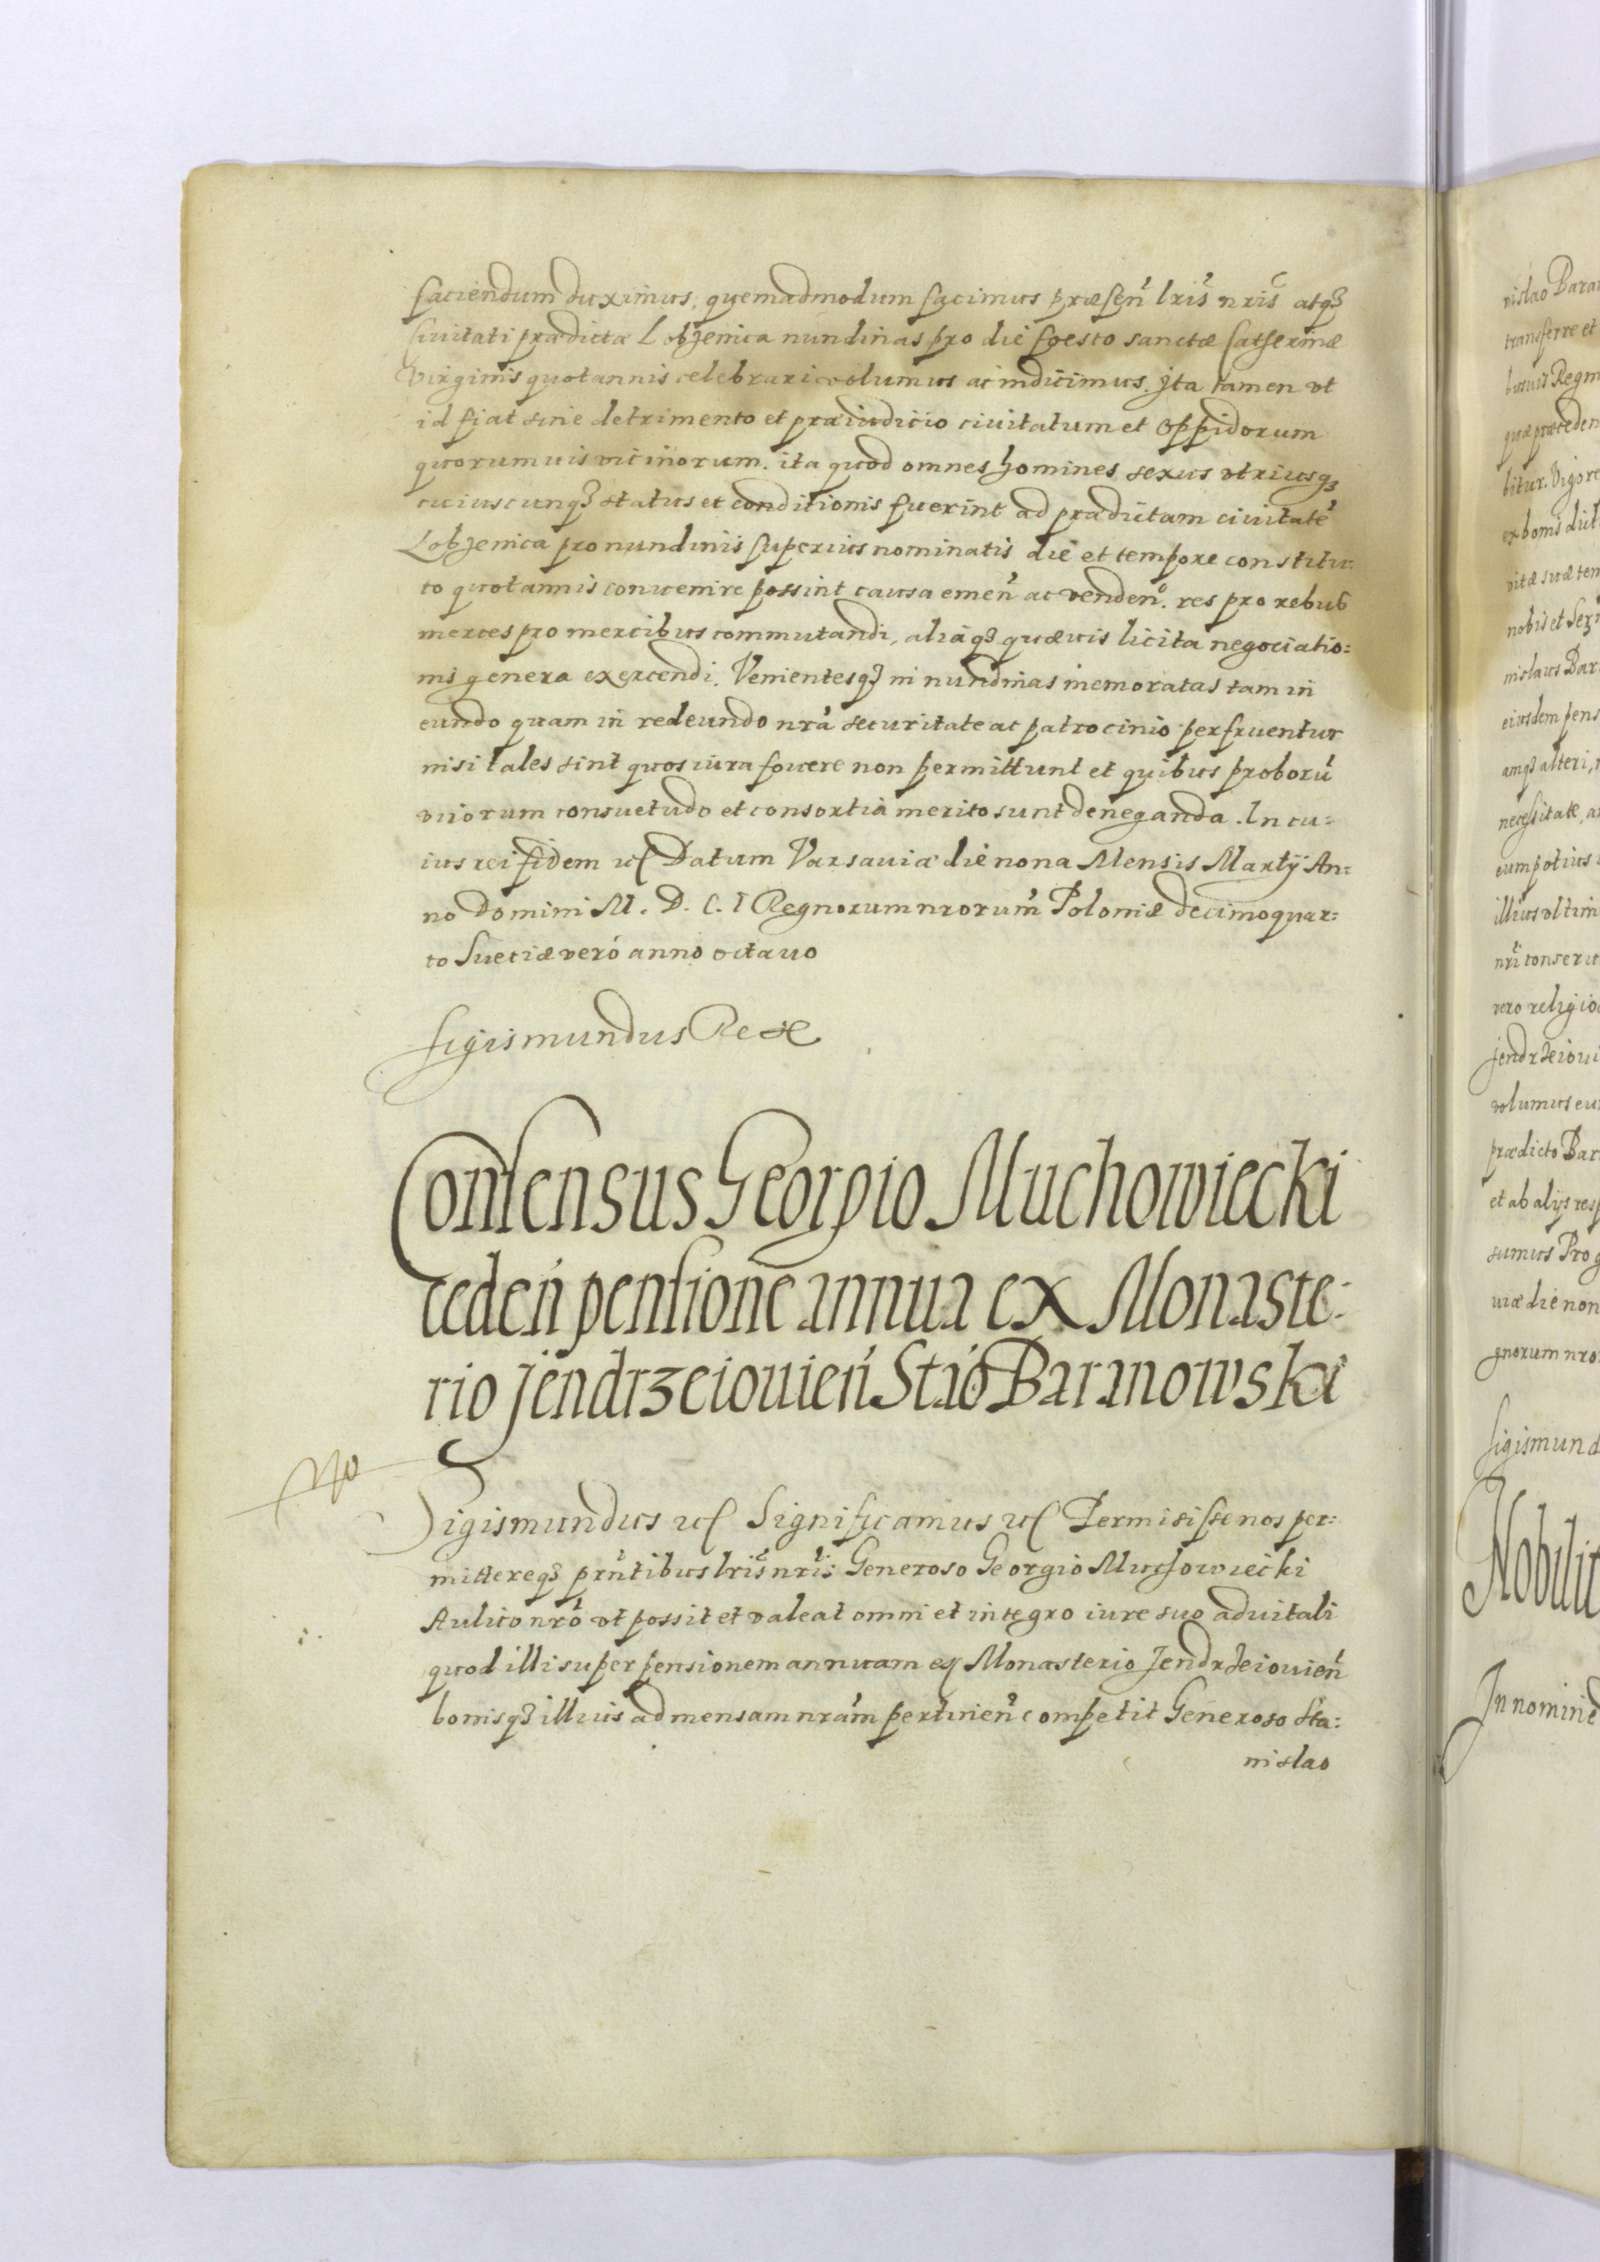 faciendum duximus, quemadmodum facimus præsen̄ lris̄ nris̄ atq3
Ciuitati prædictæ Lobzenica nundinas pro die foesto sanctæ Catherinæ
Virginis quotannis celebrari volumus ac indicimus. Ita tamen vt
id fiat sine detrimento et præiudicio ciuitatum et Oppidorum
quorumuis vicinorum. ita quod omnes homines sexus vtriusq3
cuiuscunq3 status et conditionis fuerint ad prædictam ciuitatē
Lobzenica pro nundinis superius nominatis die et tempore constitu:
to quotannis conuenire possint causa emen̄ ac venden̄. res pro rebus
merces pro mercibus commutandi, aliaq3 quæuis licita negociatio:
nis genera exercendi. Venientesq3 in nundinas memoratas tam in
eundo quam in redeundo nrā securitate ac patrocinio perfruentur
nisi tales sint quos iura fouere non permittunt et quibus proborū
virorum consuetudo et consortia merito sunt deneganda. In cu:
ius rei fidem etc Datum Varsauiæ die nona Mensis Martij An:
no Domini M. D. C. I Regnorum nrorum̄ Poloniæ decimoquar:
to Sueciæ vero anno octauo
Sigismundus Rex
Consensus Georgio Muchowiecki
ceden̄ pensione annua ex Monaste:
rio Jendrzeiouien̄ Stāo Baranowski
Sigismundus etc Significamus etc Permisisse nos per:
mittereq3 prn̄tibus lris̄ nris̄ Generoso Georgio Muchowiecki
Aulico nrō vt possit et valeat omni et integro iure suo aduitali
quod illi super pensionem annuam ex Monasterio Jendrzeiouien̄
bonisq3 illius ad mensam nrām pertinen̄ competit Generoso Sta:
nislao
nislao Bara
transferre et
Regni
quæ præceden
bitur. Vigore
ex bonis dict
vitæ suæ tem
nobis et Ser
nislaus Bar
eiusdem pens
amq3 alteri,
necessitate, a
eum potius
illius vltim
nrī conseru
vero religio
Jendrzeioui
volumus eu
prædicto Bar
et ab alijs resp
sumus Pro
uiæ die non
gnorum nro
Sigismund
Nobilit
In nomine